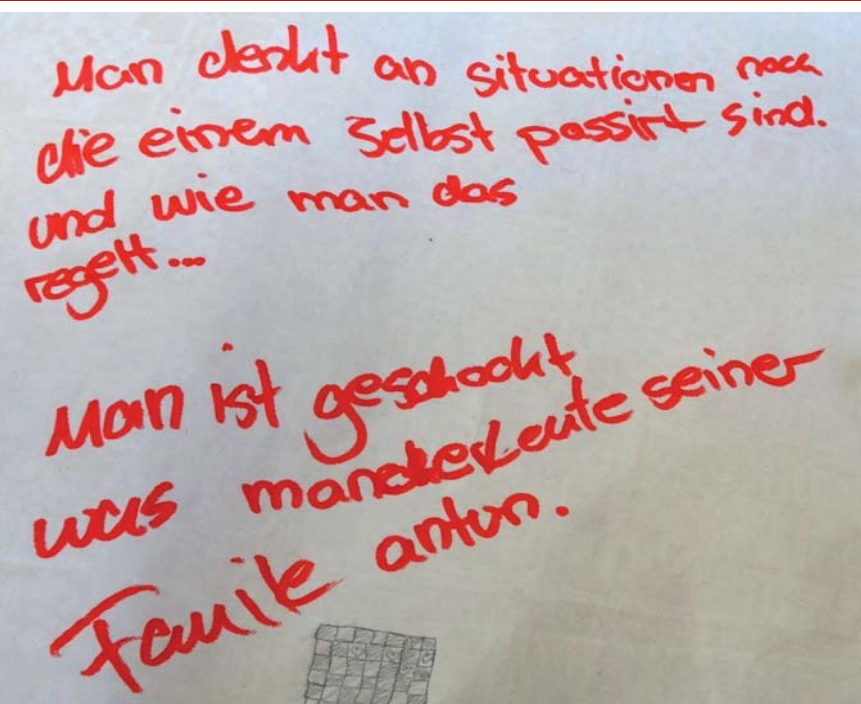 Man denkt an situationen nach
die einem Selbst passirt sind.
und wie man das
regelt...
Man ist geschockt
was mancheLeute seiner
Familie antun.